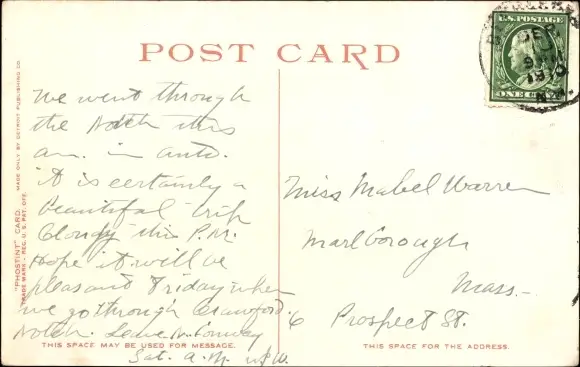 POST CARD
U.S. POSTAGE
ONE CENT
SEP
9
1910
N.H.
"PHOSTINT" CARD. MADE ONLY BY DETROIT PUBLISHING CO.
TRADE MARK - REG. U. S. PAT. OFF.
We went through
the Notch this
am. in auto.
It is certainly a
beautiful trip
Cloudy this P.M.
Hope it will be
pleasant Friday when
we go through Crawford
Notch. Leave N. Conway
Sat. A.M.
Miss Mabel Warren
Marlborough
Mass.-
6 Prospect St.
THIS SPACE MAY BE USED FOR MESSAGE.
THIS SPACE IS FOR THE ADDRESS.